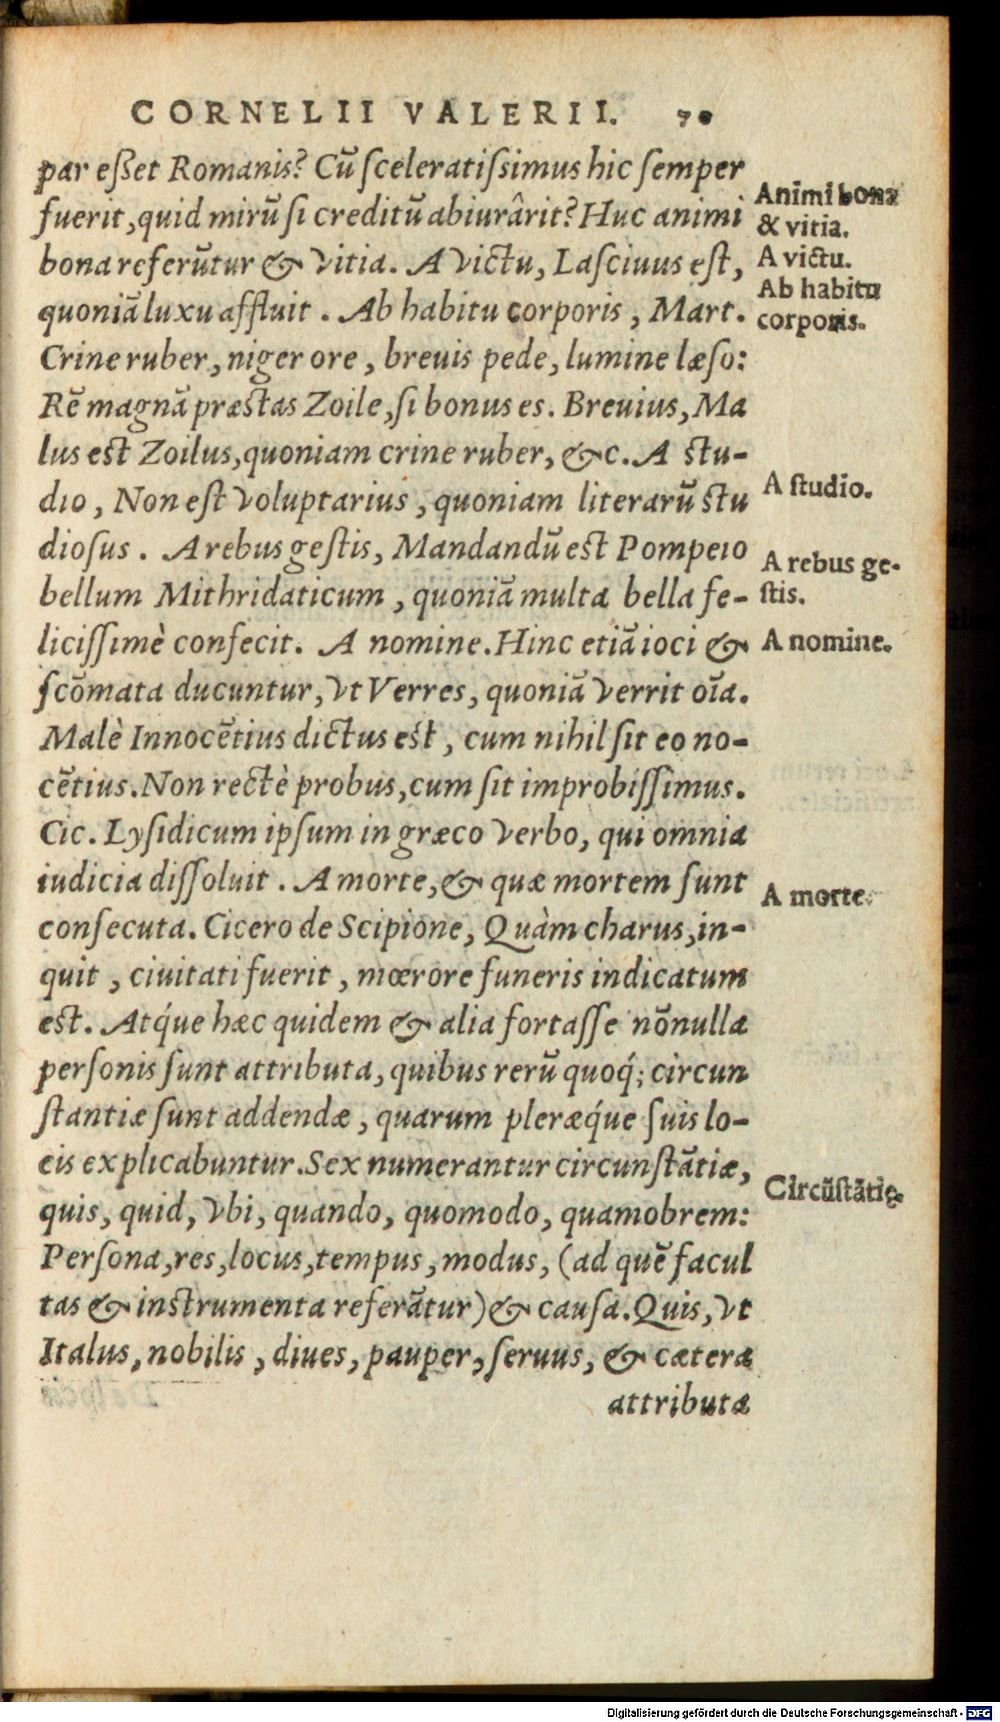 CORNELII VALERII. 70
par esset Romanis? Cũ sceleratissimus hic semper
fuerit, quid mirũ si creditũ abiurârit? Huc animi
bona referũtur & vitia. A victu, Lasciuus est,
quoniã luxu affluit. Ab habitu corporis, Mart.
Crine ruber, niger ore, breuis pede, lumine læso:
Rẽ magnã præstas Zoile, si bonus es. Breuius, Ma
lus est Zoilus, quoniam crine ruber, &c. A stu-
dio, Non est voluptarius, quoniam literarũ stu
diosus. A rebus gestis, Mandandũ est Pompeio
bellum Mithridaticum, quoniã multa bella fe-
licissimè confecit. A nomine. Hinc etiã ioci &
scõmata ducuntur, vt Verres, quoniã verrit oĩa.
Malè Innocẽtius dictus est, cum nihil sit eo no-
cẽtius. Non rectè probus, cum sit improbissimus.
Cic. Lysidicum ipsum in græco verbo, qui omnia
iudicia dissoluit. A morte, & quæ mortem sunt
consecuta. Cicero de Scipione, Quàm charus, in-
quit, ciuitati fuerit, mœrore funeris indicatum
est. Atq́ue hæc quidem & alia fortasse nõnulla
personis sunt attributa, quibus rerũ quoq́; circun
stantiæ sunt addendæ, quarum pleræq́ue suis lo-
cis explicabuntur. Sex numerantur circunstãtiæ,
quis, quid, vbi, quando, quomodo, quamobrem:
Persona, res, locus, tempus, modus, (ad quẽ facul
tas & instrumenta referãtur) & causa. Quis, vt
Italus, nobilis, diues, pauper, seruus, & cæteræ
attributa
Animi bona
& vitia.
A victu.
Ab habitu
corporis.
A studio.
A rebus ge-
stis.
A nomine.
A morte.
Circũstãtię.
Digitalisierung gefördert durch die Deutsche Forschungsgemeinschaft - DFG